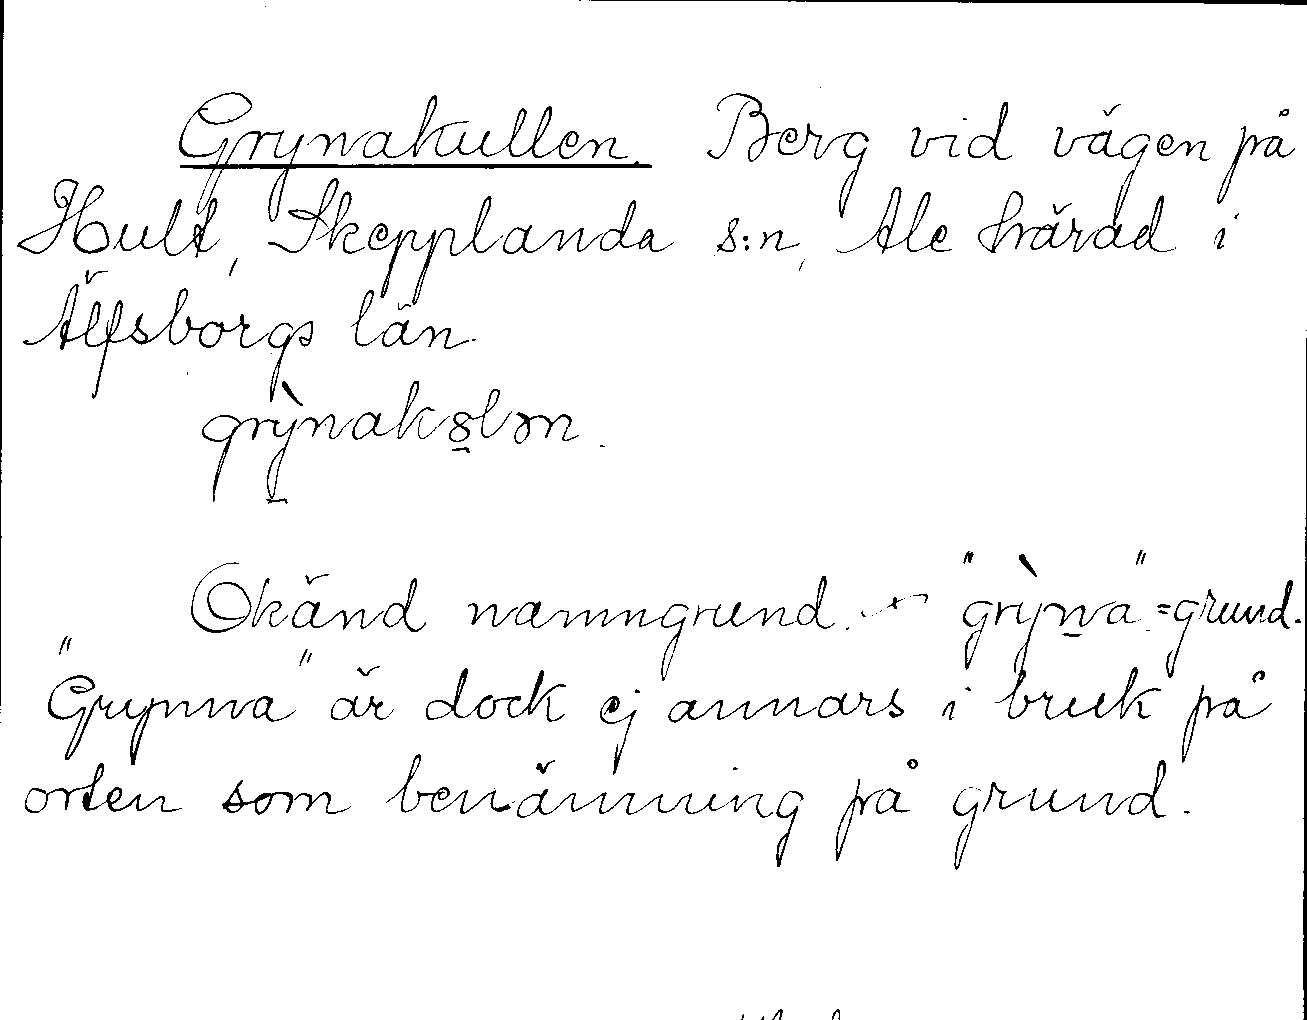 Grynakullen. Berg vid vägen på
Hult, Skepplanda s:n, Ale härad i
Älfsborgs län.
grỳnakꝏlən.
Okänd namngrund. "grỳna" = grund.
"Grynna" är dock ej annars i bruk på
orten som benämning på grund.